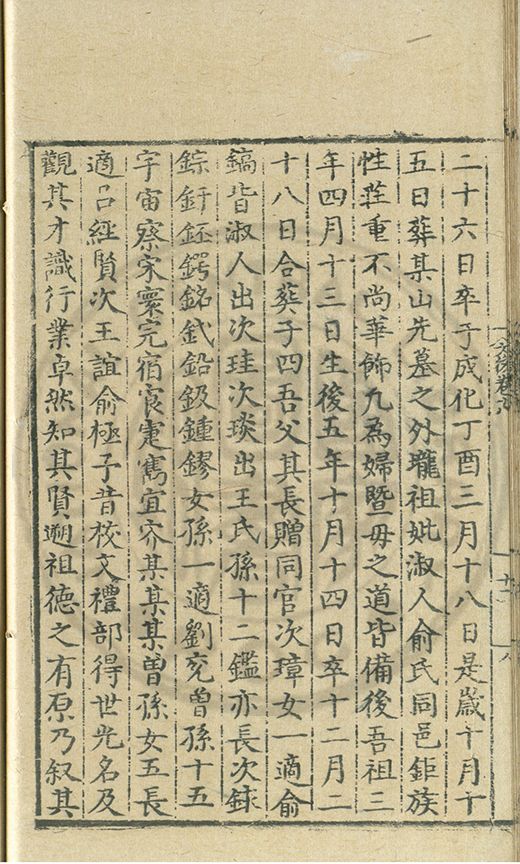 二十六日卒于成化丁酉三月十八日是歲十月十
五日葬某山先墓之外壠祖妣淑人俞氏同邑鉅族
性莊重不尚華飾凢為婦暨毋之道皆備後吾祖三
年四月十三日生後五年十月十四日卒十二月二
十八日合葬子四吾父其長贈同官次璋女一適俞
鎬皆淑人出次珪次琰出王氏孫十二鑑亦長次銶
錝釬鉟鍔銘釴鉛鈒鍾鏐女孫一適劉兖曾孫十五
宇宙察宋寰完宿㝨寔寯宜㝏某某某曾孫女五長
適吕經賢次王誼俞極予昔校文禮部得世光名及
觀其才識行業卓然知其賢遡祖徳之有原乃叙其